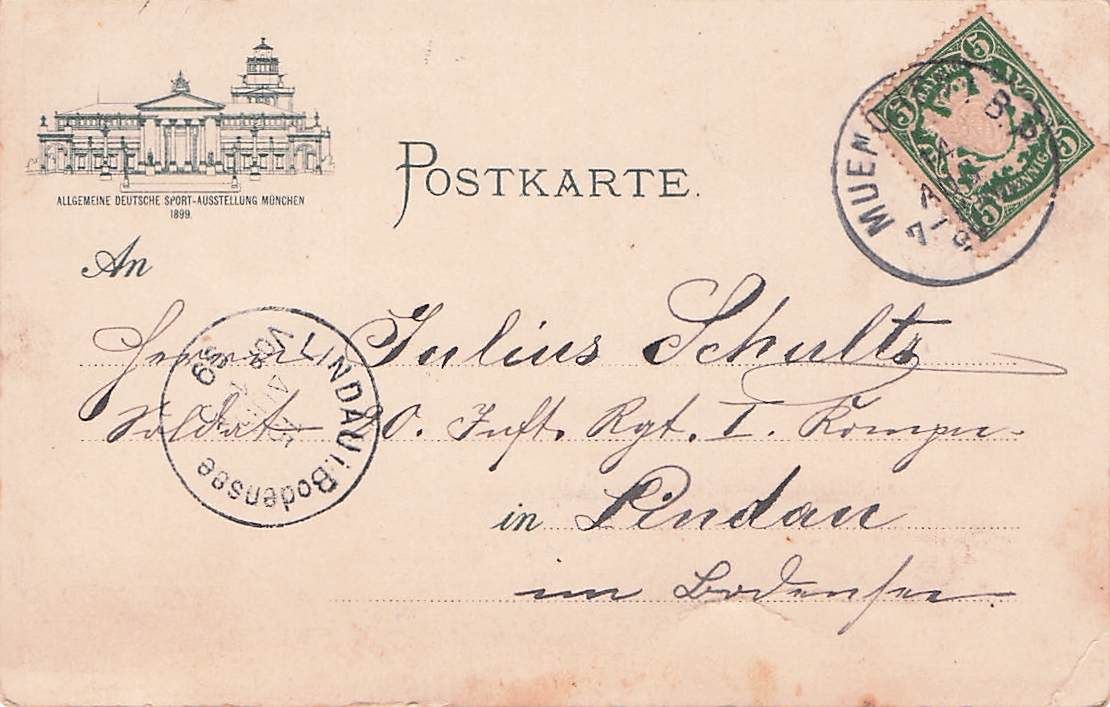 ALLGEMEINE DEUTSCHE SPORT-AUSSTELLUNG MÜNCHEN
1899.
POSTKARTE.
5 5
5 PFENNIG 5
MUEN
7
An
Herrn Julius Schultz
Soldat 20. Inft. Rgt. I. Kompn.
in Lindau
im Bodensee
LINDAU i. Bodensee
99